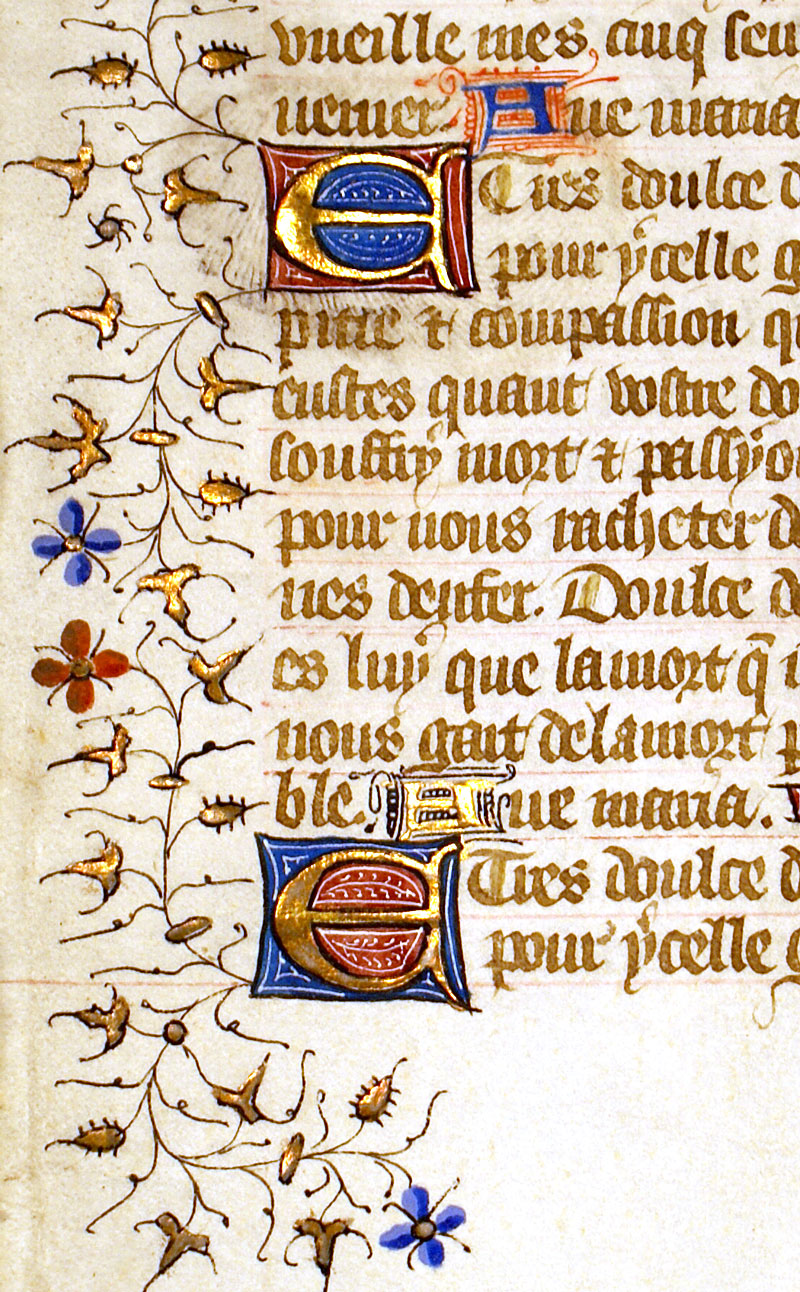 vueille mes cinq sen
uenier. Aue maria
E Tres doulce d
pour ycelle g
pitie & compassion q
eustes quant vostre do
souffry mort & passyo
pour nous racheter d
nes denfer. Doulce d
es luy que la mort q̃ i
nous gart de la mort p
ble. Aue maria.
E Tres doulce d
pour ycelle g